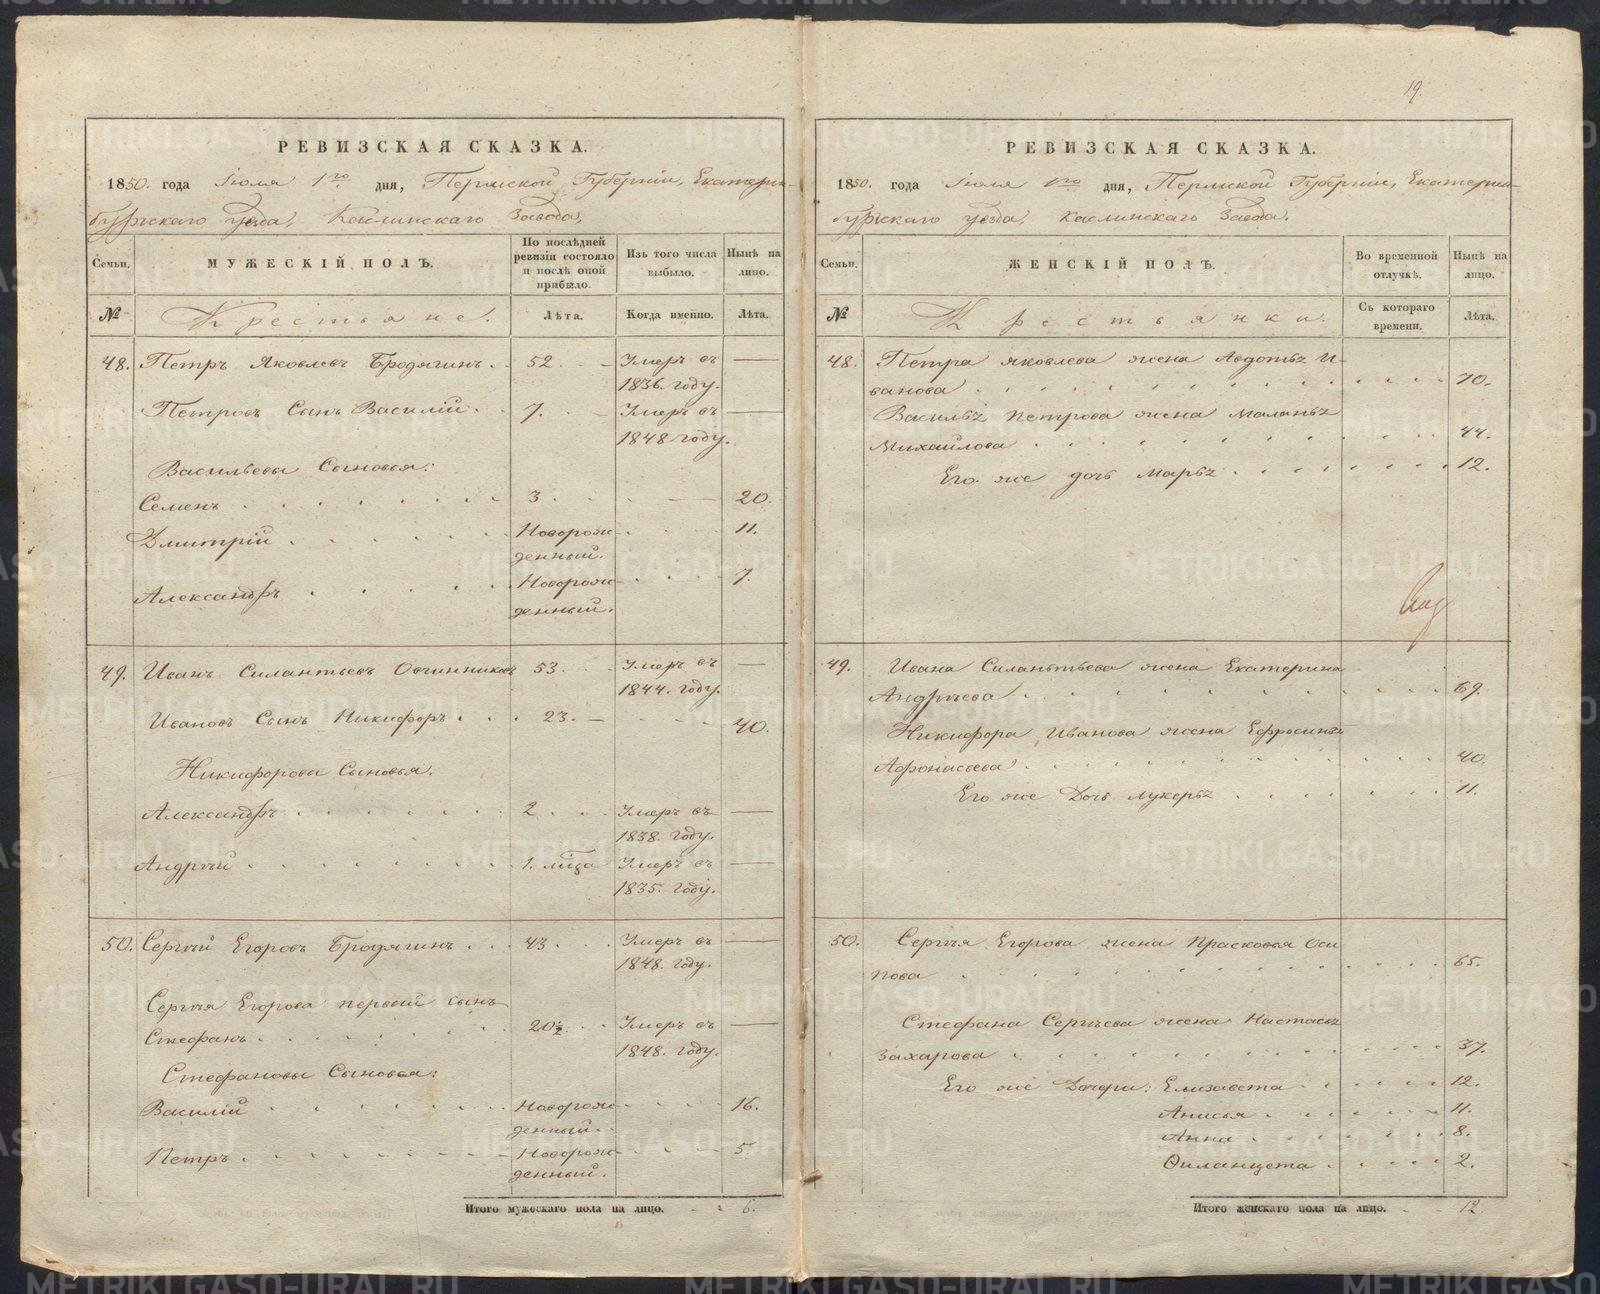 19.
РЕВИЗСКАЯ СКАЗКА.
1850. года Іюля 1го дня, Пермской Губерніи, Екатерин-
бургскаго уезда, Каслинскаго Завода,
Семьи.
МУЖЕСКІЙ ПОЛЪ.
По послѣдней ревизіи состояло и послѣ оной прибыло.
Изъ того числа выбыло.
Нынѣ на лицо.
№
Крестьяне.
Лѣта.
Когда именно.
Лѣта.
48. Петръ Яковлевъ Бродягинъ . . 52. Умеръ въ —
1836. году.
Петровъ Сынъ Василій . . 7. Умеръ въ —
1848 году.
Васильевы Сыновья:
Семенъ 3 — 20.
Дмитрій Новорож- 11.
денный.
Александръ Новорож- 7.
денный.
49. Иванъ Силантьевъ Овчинниковъ 53. Умеръ въ —
1844. году.
Ивановъ Сынъ Никифоръ . . . 23. — 40.
Никифоровы Сыновья.
Александръ 2 Умеръ въ —
1838. году.
Андрѣй 1. мца Умеръ въ —
1835. году.
50. Сергѣй Егоровъ Бродягинъ . . . 43. Умеръ въ —
1848. году.
Сергѣя Егорова первый сынъ
Стефанъ 20½. Умеръ въ —
1848. году.
Стефановы Сыновья:
Василій Новорож- 16.
денный.
Петръ Новорож- 5.
денный.
Итого мужескаго пола на лицо. 6.
РЕВИЗСКАЯ СКАЗКА.
1850. года Іюля 1го дня, Пермской Губерніи, Екатерин-
бургскаго уезда, Каслинскаго Завода.
Семьи.
ЖЕНСКІЙ ПОЛЪ.
Во временной отлучкѣ.
Нынѣ на лицо.
№
Крестьянки.
Съ котораго времени.
Лѣта.
48. Петра Яковлева жена Авдотьѣ И-
ванова 70.
Васильѣ Петрова жена Маланьѣ
Михайлова 44.
Его же дочь Марьѣ 12.
49. Ивана Силаньтьева жена Екатерина
Андрѣева 69.
Никифора Иванова жена Ефросиньѣ
Афонасьева 40.
Его же Дочь Лукерьѣ 11.
50. Сергѣя Егорова жена Прасковья Оси
пова 65.
Стефана Сергѣева жена Настасьѣ
Захарова 37.
Его же Дочери: Елизавета 12.
Анисья 11.
Анна 8.
Филанцета 2.
Итого женскаго пола на лицо. 12
METRIKI.GASO-URAL.RU